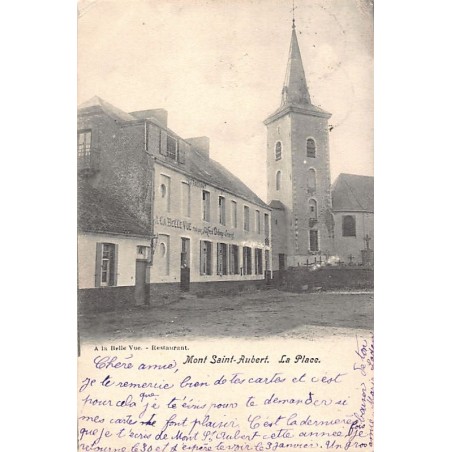 A LA BELLE VUE
A la Belle Vue. - Restaurant.
Mont Saint-Aubert. La Place.
Chère amie,
Je te remercie bien de tes cartes et c'est
pour cela que je t'écris pour te demander si
mes cartes te font plaisir. C'est la dernière
que je t'écris de Mont St Aubert cette année je
retourne le 30 et j'espère te voir le 3 janvier. Un gros